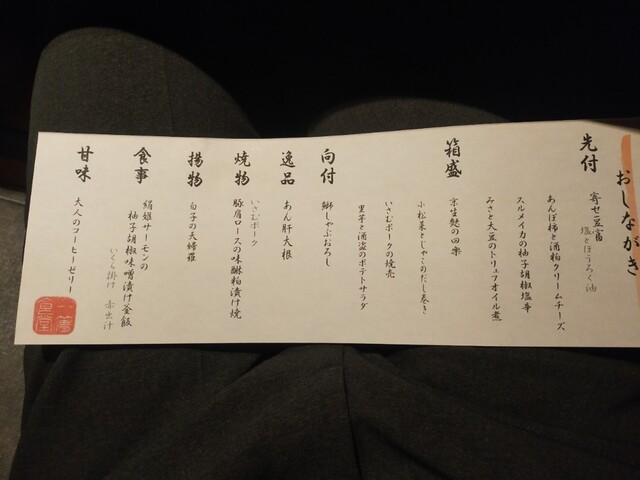 おしながき
先付
寄せ豆富
塩とほうろく油
箱盛
あんぽ柿と酒粕クリームチーズ
スルメイカの柚子胡椒塩辛
みさと大豆のトリュフオイル煮
京生麩の田楽
小松菜とじゃこのだし巻き
いさむポークの焼売
里芋と酒盗のポテトサラダ
向付
鰤しゃぶおろし
逸品
あん肝大根
焼物
いさむポーク
豚肩ロースの味醂粕漬け焼
揚物
白子の天婦羅
食事
絹姫サーモンの
柚子胡椒味噌漬け釜飯
いくら掛け 赤出汁
甘味
大人のコーヒーゼリー